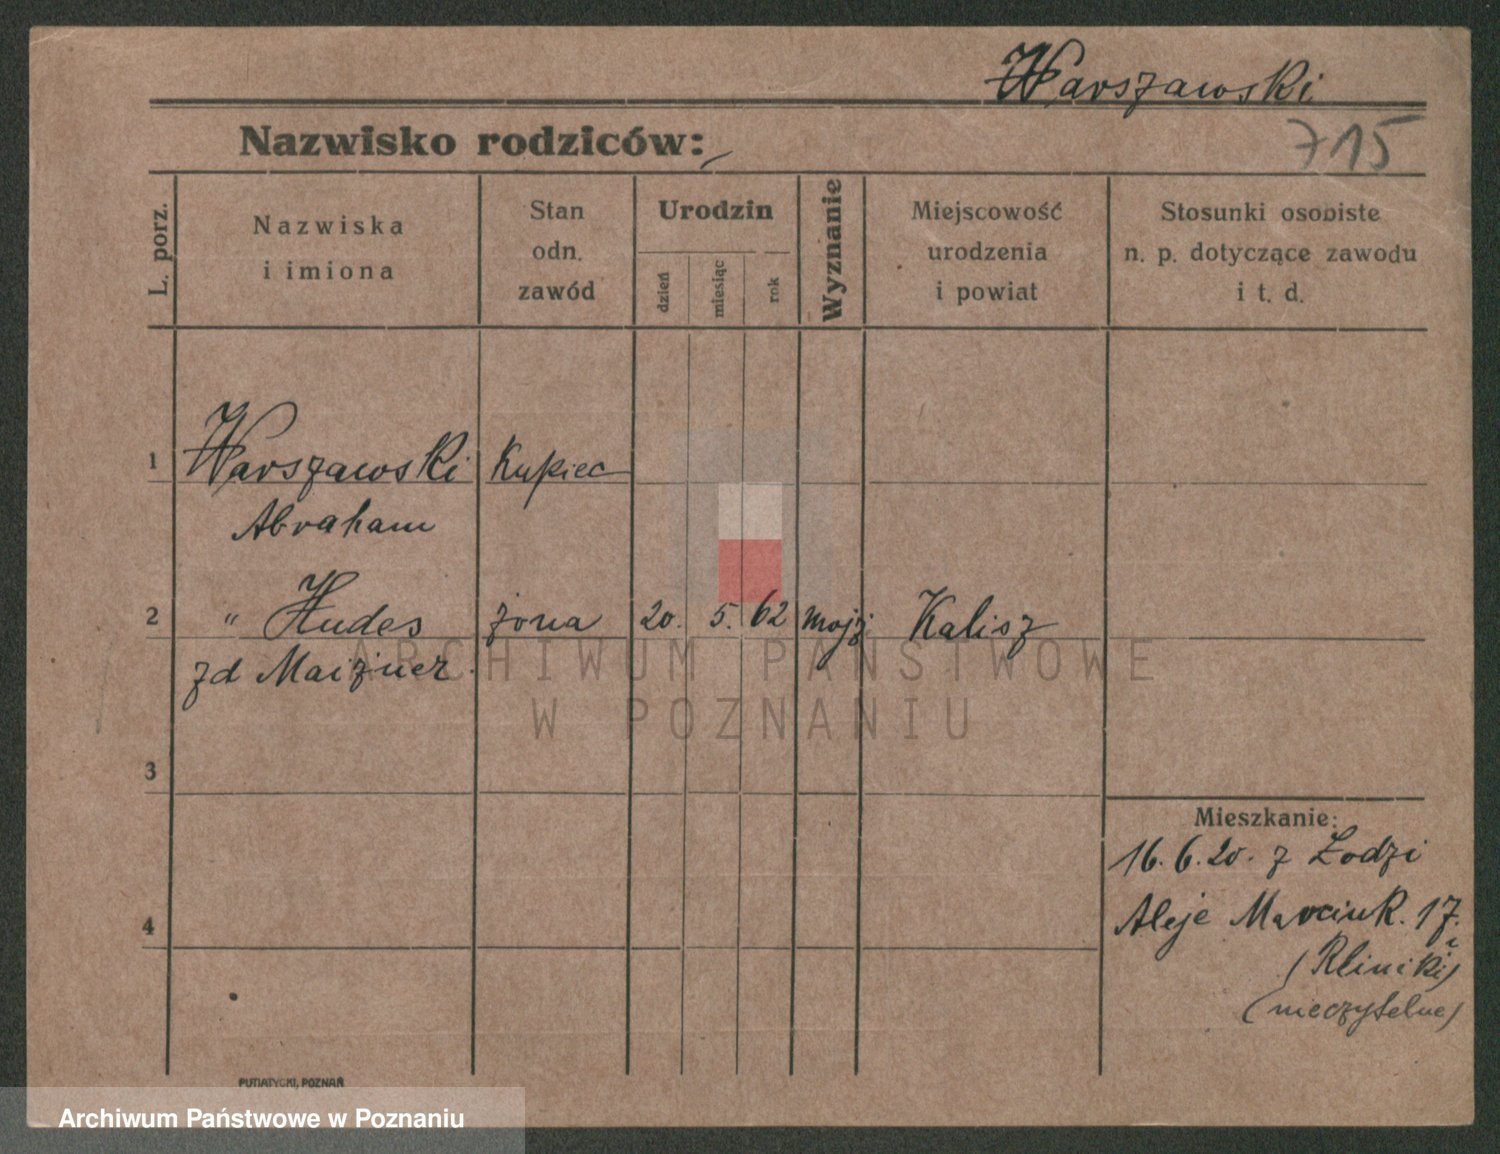 Warszawski
715
Nazwisko rodziców:
L. porz.
Nazwiska
i imiona
Stan
odn.
zawód
Urodzin
dzień
miesiąc
rok
Wyznanie
Miejscowość
urodzenia
i powiat
Stosunki osobiste
n. p. dotyczące zawodu
i t. d.
1 Warszawski Kupiec
Abraham
2 " Hudes żona 20. 5. 62 mojż Kalisz
zd Maizner
3
4
Mieszkanie:
16.6.20. z Łodzi
Aleje Marcink. 17.
(nieczytelne)
PUTIATYCKI, POZNAŃ
ARCHIWUM PAŃSTWOWE
W POZNANIU
Archiwum Państwowe w Poznaniu